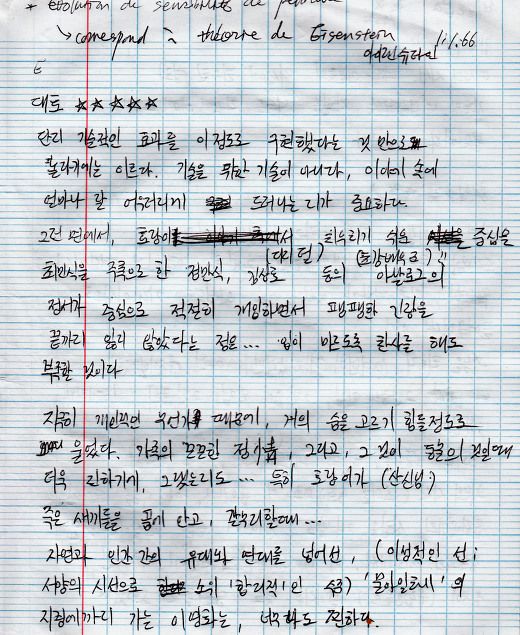 * évolution de sensibilité de
↳ correspond à théorie de Eisenstein
에이젠슈타인
E
대호 ☆☆☆☆☆
단지 기술적인 효과를 이정도로 구현했다는 것 만으로
놀라기에는 이르다. 기술을 위한 기술이 아니다, 이야기 속에
얼마나 잘 어우러지게 드러나는 지가 중요하다.
그런 면에서, 치우치기 쉬운 중심을
최민식을 주축으로 한 정만식, 김상호 등의 아날로그의
정서가 중심으로 적절히 개입하면서 팽팽한 긴장을
끝까지 잃지 않았다는 점은... 입이 마르도록 찬사를 해도
부족한 것이다
지극히 개인적인 때문에, 거의 숨을 고르기 힘들정도로
울었다. 가족의 끈끈한 정서를, 그리고, 그 것이 동물의 것일때
더욱 진하게, 그랬는지도... 특히 호랑이가 (산신님;)
죽은 새끼들을 품에 안고, 갈무리할때...
자연과 인간 간의 유대와 연대를 넘어선, (이성적인 선;
서양의 시선으로 소위 '합리적'인 '물아일체'의
지경에까지 가는 이 영화는, 너무나도 진하다.